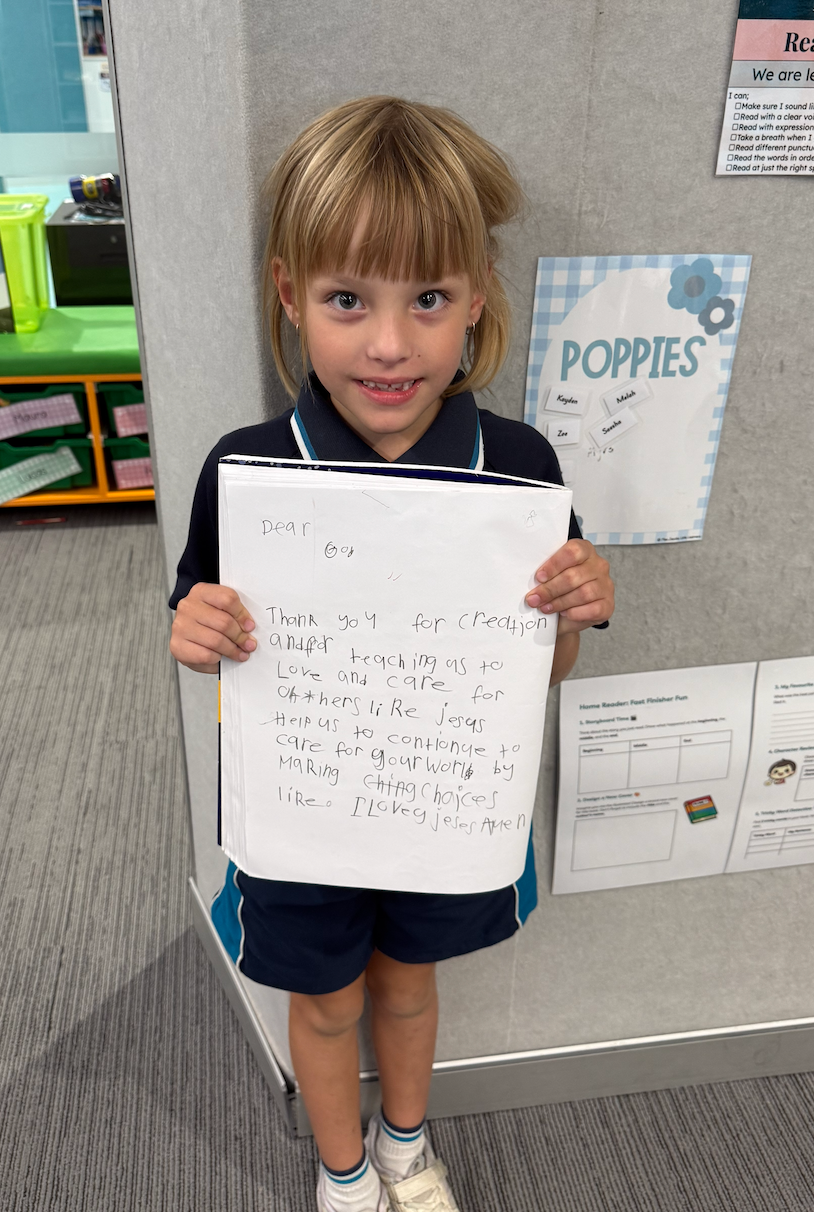 Rea
We are le
I can;
Make sure I sound li
Read with a clear voi
Read with expression
Take a breath when I
Read different punctu
Read the words in orde
Read at just the right sp
POPPIES
Kayden
Maleh
Zoe
Dear
God
Thank you for creation
andfor
teaching us to
Love and care for
Ot*hers like jesus
Help us to contionue to
care for your world by
Making ching choices
like. I Lovey jeses Amen
Home Reader: Fast Finisher Fun
1. Storyboard Time
Beginning
Middle
End
2. Design a New Cover
3. My Favourite
4. Character Review